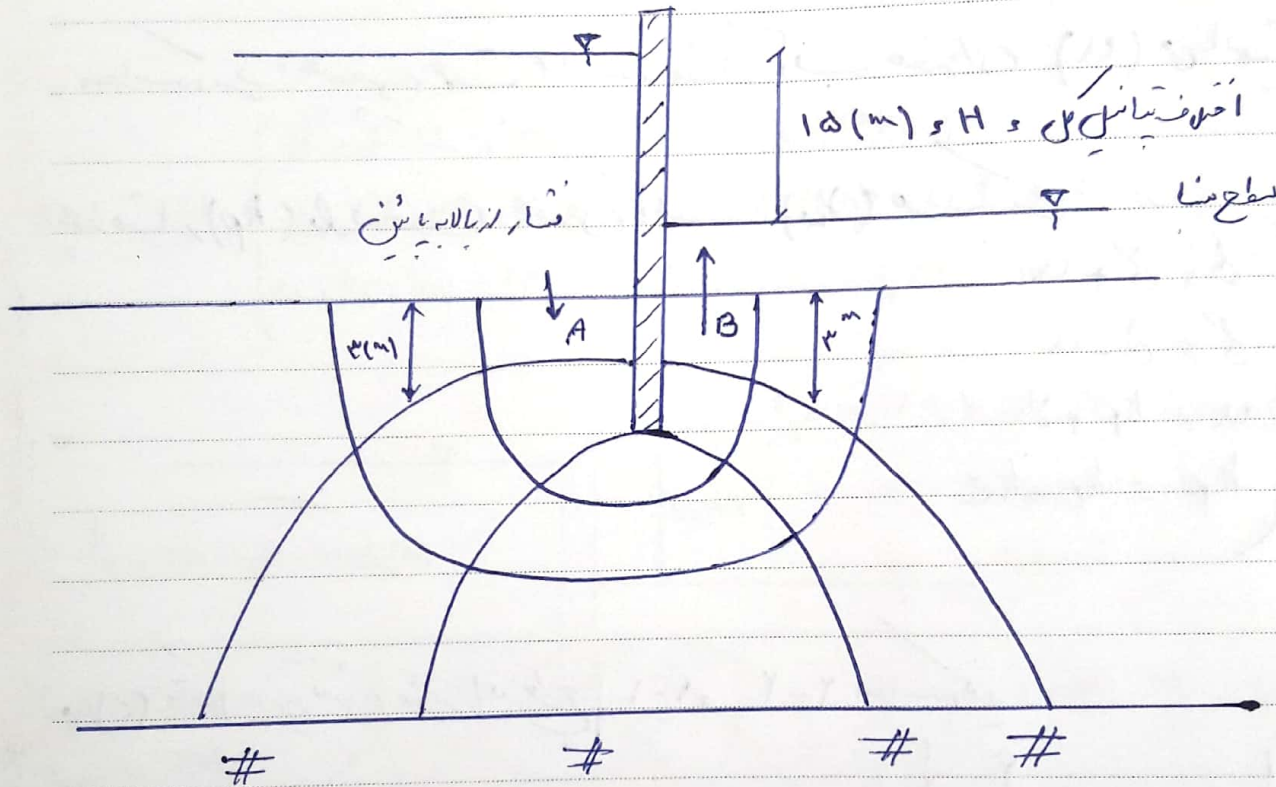 اختلاف پتانسیل کل = H = ۱۵(m)
سطح مبنا
فشار از بالا به پایین
A
B
۳(m)
۳m